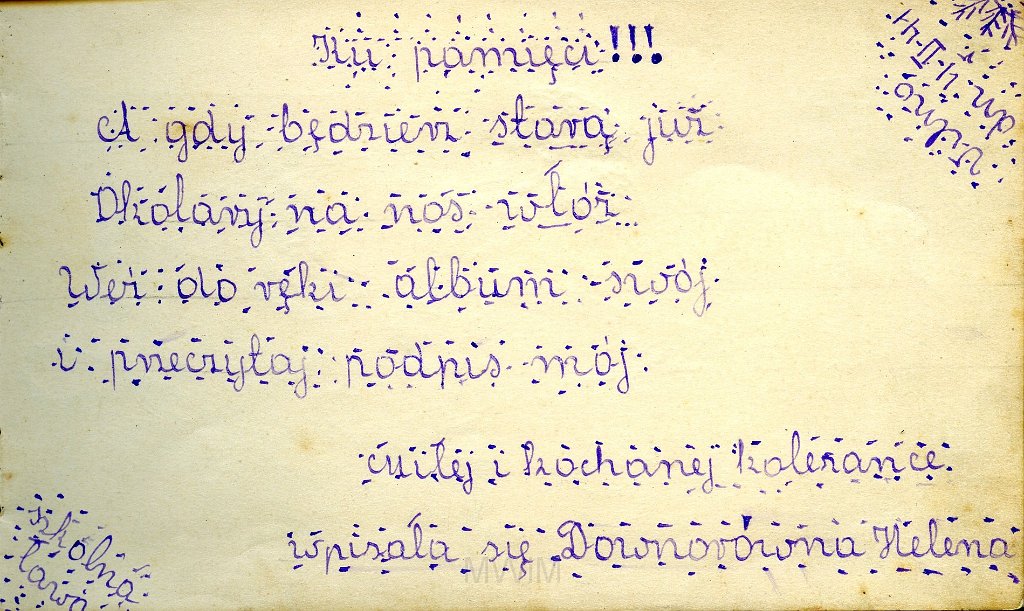 Ku pamięci!!!
Wilno
dn. 4-II-44
A gdy będziesz starą już
Okulary na nos włóż
Weź do ręki album swój
i przeczytaj podpis mój.
miłej i kochanej koleżance.
wpisała się Downorówna Helena
szkolna
ława
MWM